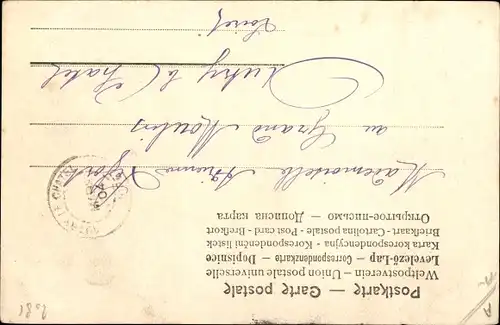 Postkarte — Carte postale
Weltpostverein — Union postale universelle
Levelező-Lap — Correspondenzkarte — Dopisnice
Karta korespondencyjna - Korespondenční lístek
Briefkaart - Cartolina postale - Post card - Brefkort
Открытое письмо — Дописна карта
Mademoiselle
au Grand Moulin
Autry le Chatel
Loiret
AUTRY-LE-CHATEL
04